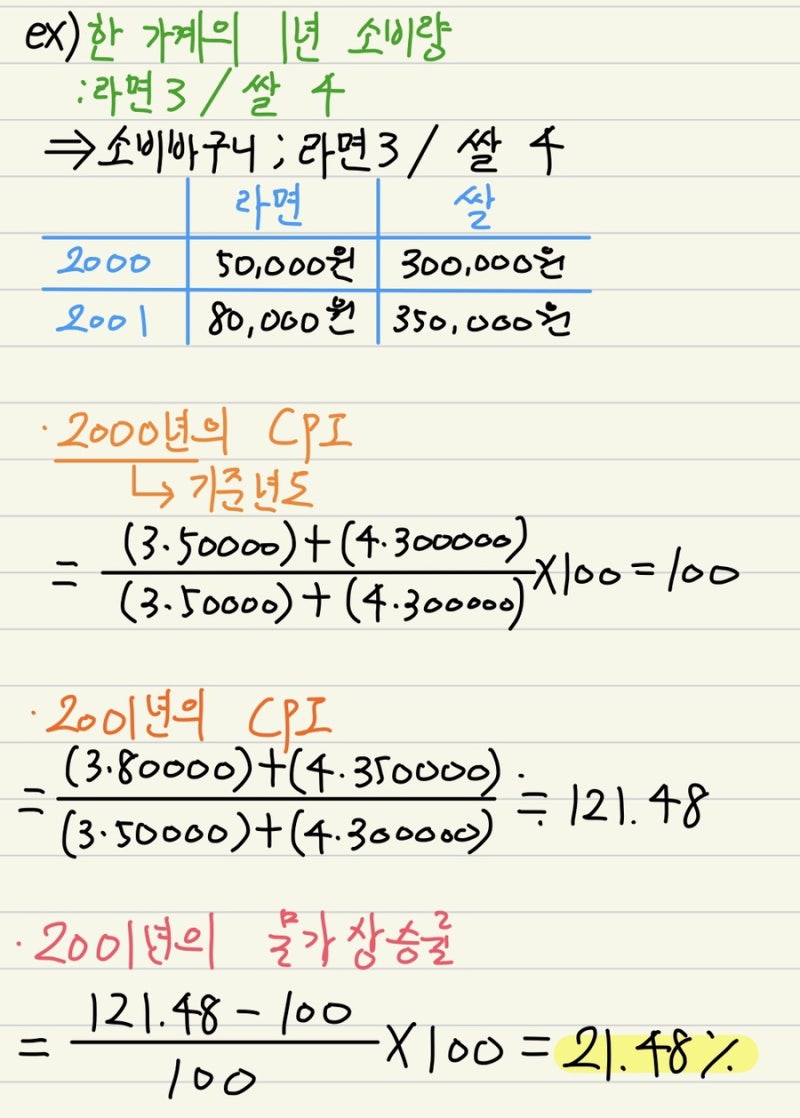 ex) 한 가계의 1년 소비량
: 라면 3 / 쌀 4
⇒ 소비바구니 ; 라면 3 / 쌀 4
라면 쌀
2000 50,000원 300,000원
2001 80,000원 350,000원
· 2000년의 CPI
↳ 기준년도
(3·50000)+(4·300000)
= ×100 = 100
(3·50000)+(4·300000)
· 2001년의 CPI
(3·80000)+(4·350000)
= ≒ 121.48
(3·50000)+(4·300000)
· 2001년의 물가상승률
121.48 - 100
= ×100 = 21.48%
100